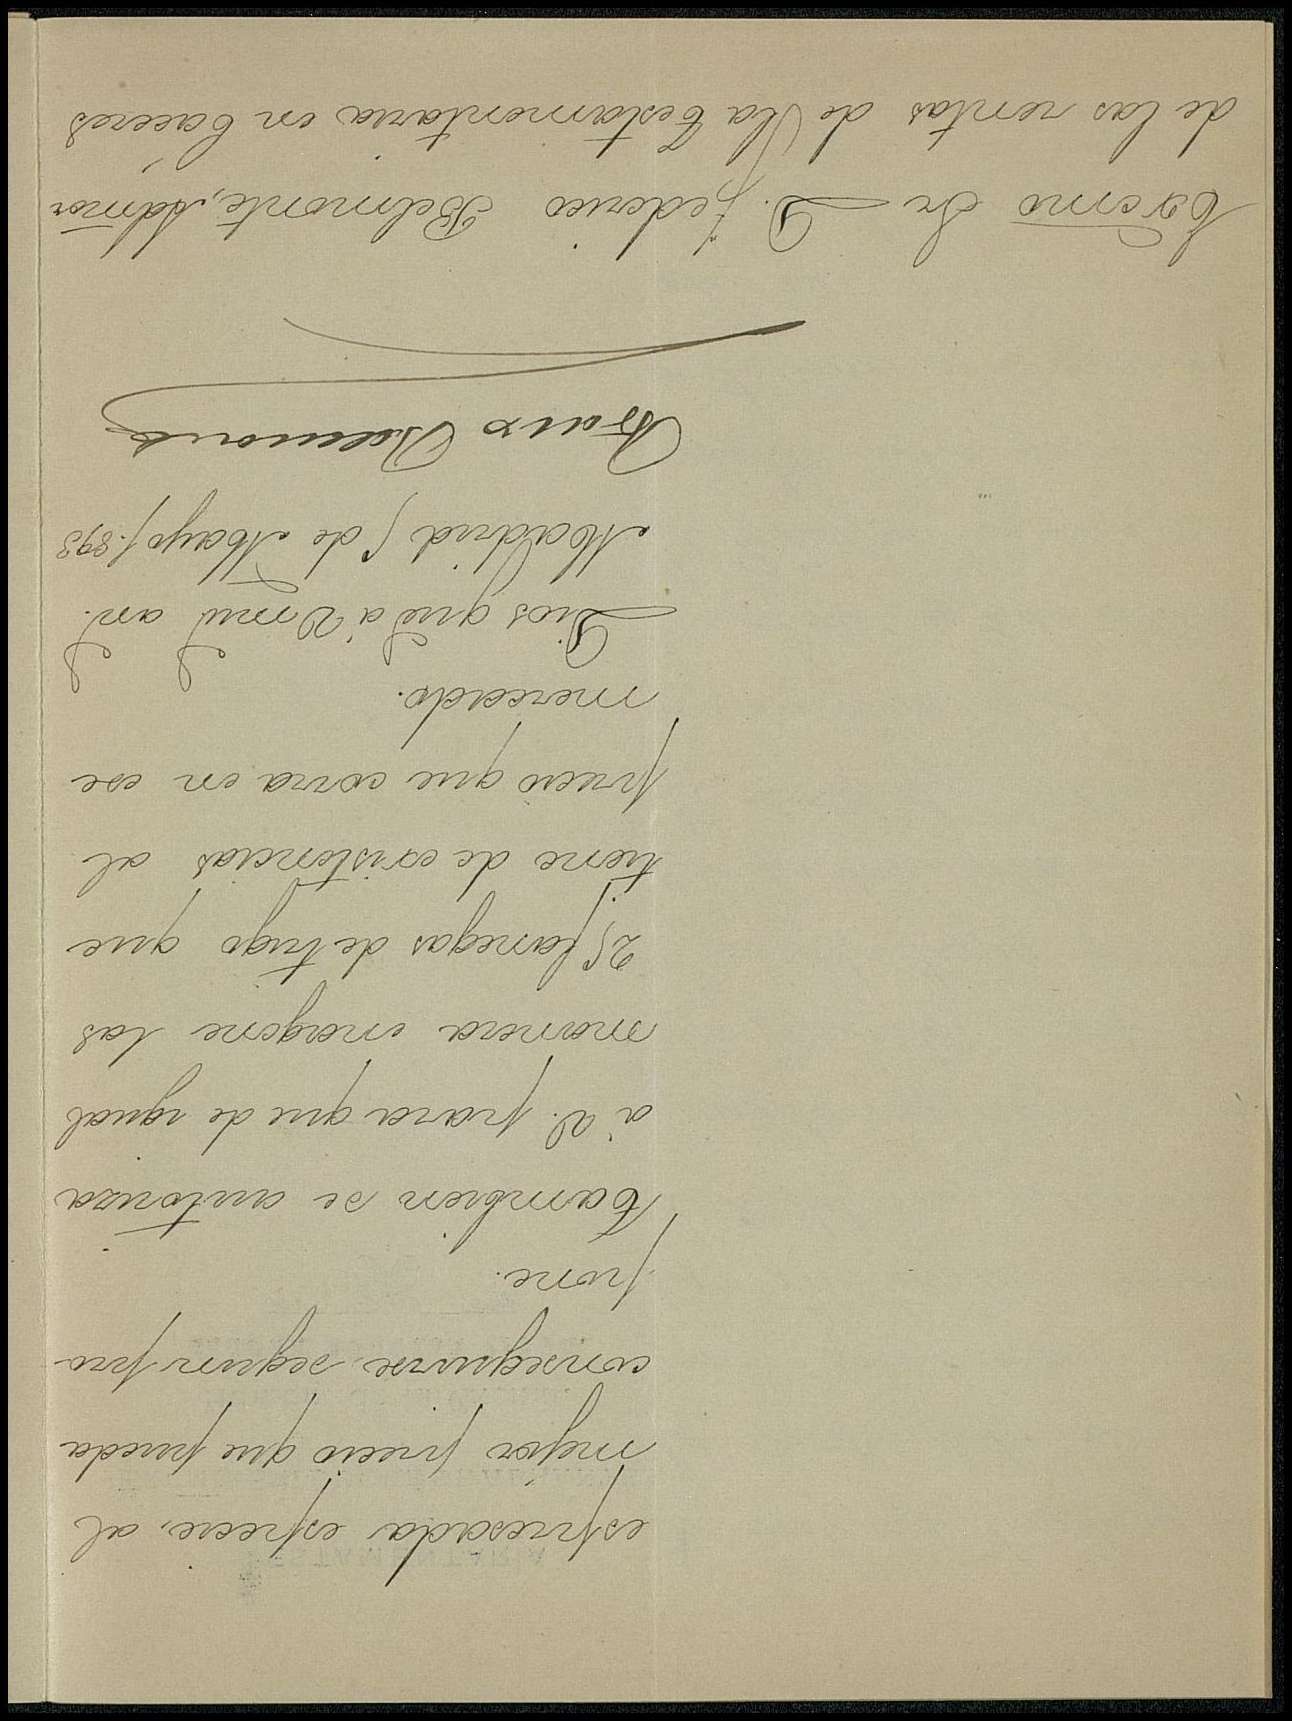 espresada especie, al
mejor precio que pueda
conseguirse segun pro
pone.
Tambien se autoriza
á V. para que de igual
manera enagene las
25 fanegas de trigo que
tiene de existencias al
precio que corra en ese
mercado.
Dios gue á V. mu an.
Madrid 5 de Mayo 1.893
Excmo Sr D. Federico Belmonte, Admor
de las rentas de la Testamentaria en Cáceres